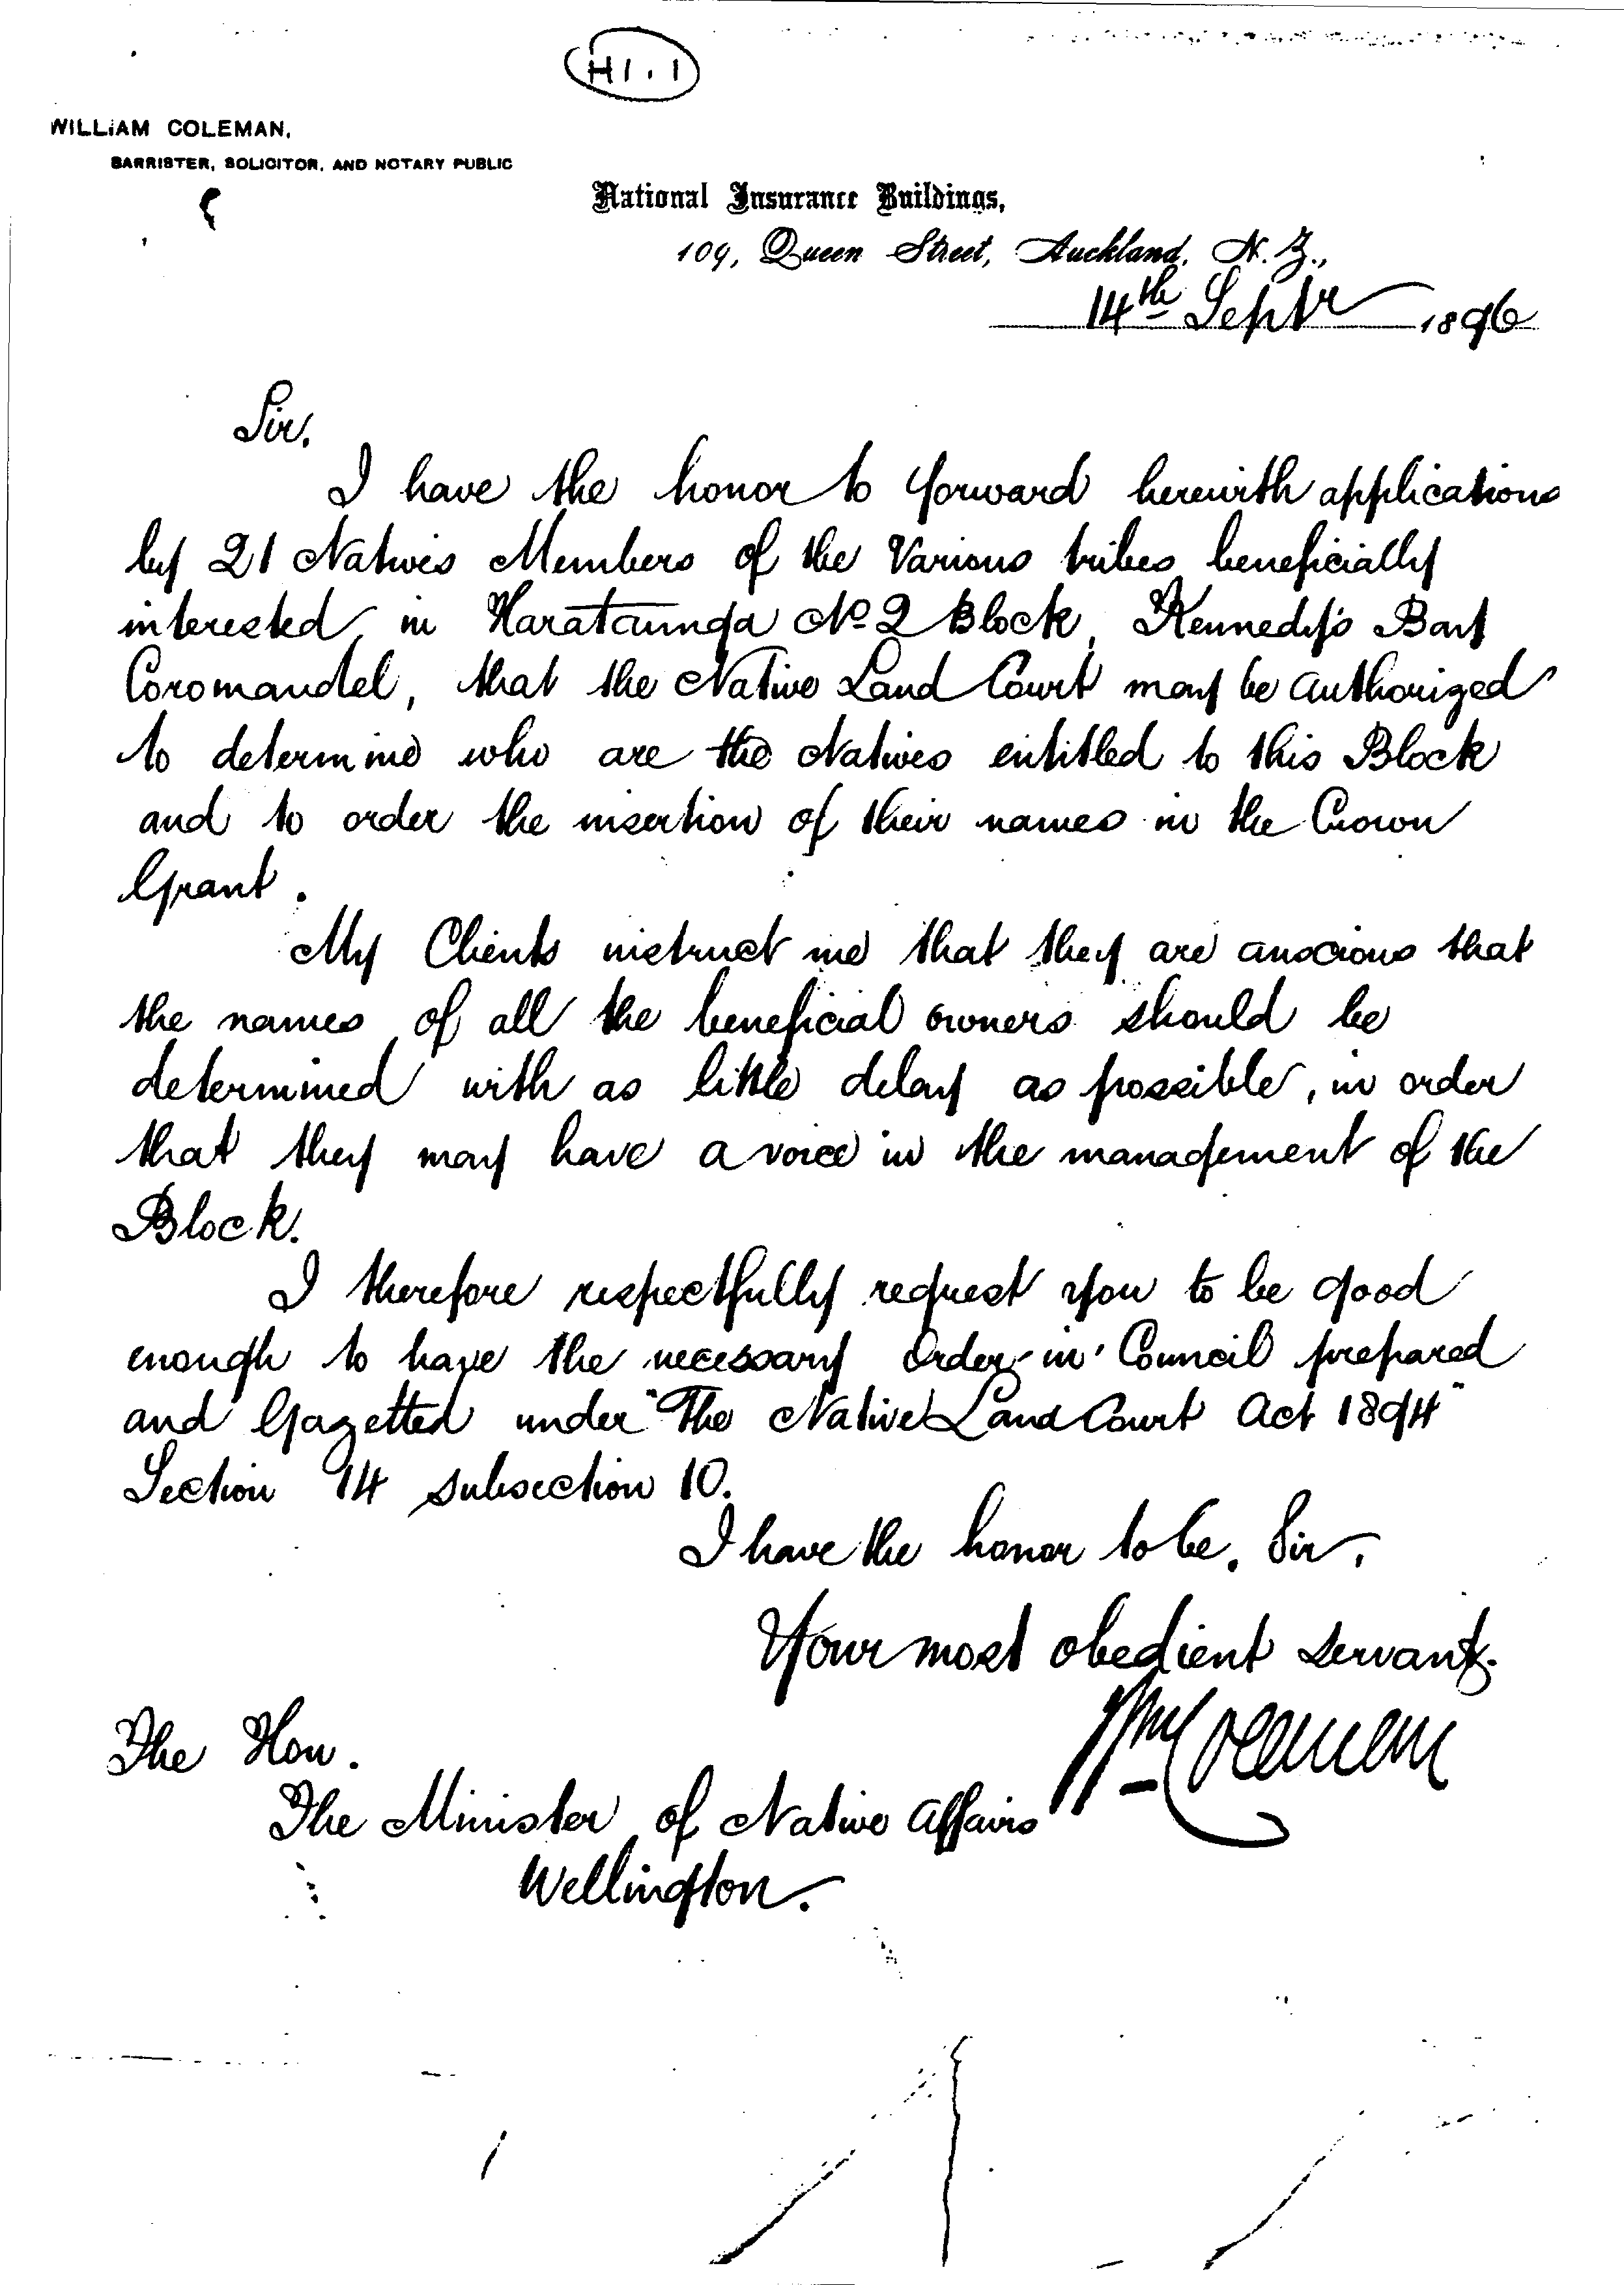 H1.1
WILLIAM COLEMAN,
BARRISTER, SOLICITOR, AND NOTARY PUBLIC
National Insurance Buildings,
109, Queen Street, Auckland, N.Z.,
14th Septr 1896
Sir.
I have the honor to forward herewith applications
by 21 Natives Members of the Various tribes beneficially
interested in Harataunga No 2 Block, Kennedy's Bay
Coromandel, that the Native Land Court may be authorized
to determine who are the Natives entitled to this Block
and to order the insertion of their names in the Crown
Grant.
My Clients instruct me that they are anxious that
the names of all the beneficial owners should be
determined with as little delay as possible, in order
that they may have a voice in the management of the
Block.
I therefore respectfully request you to be good
enough to have the necessary Order-in-Council prepared
and Gazetted under "The Native Land Court Act 1894"
Section 14 subsection 10.
I have the honor to be, Sir,
Your most obedient servant.
Wm Coleman
The Hon.
The Minister of Native Affairs
Wellington.